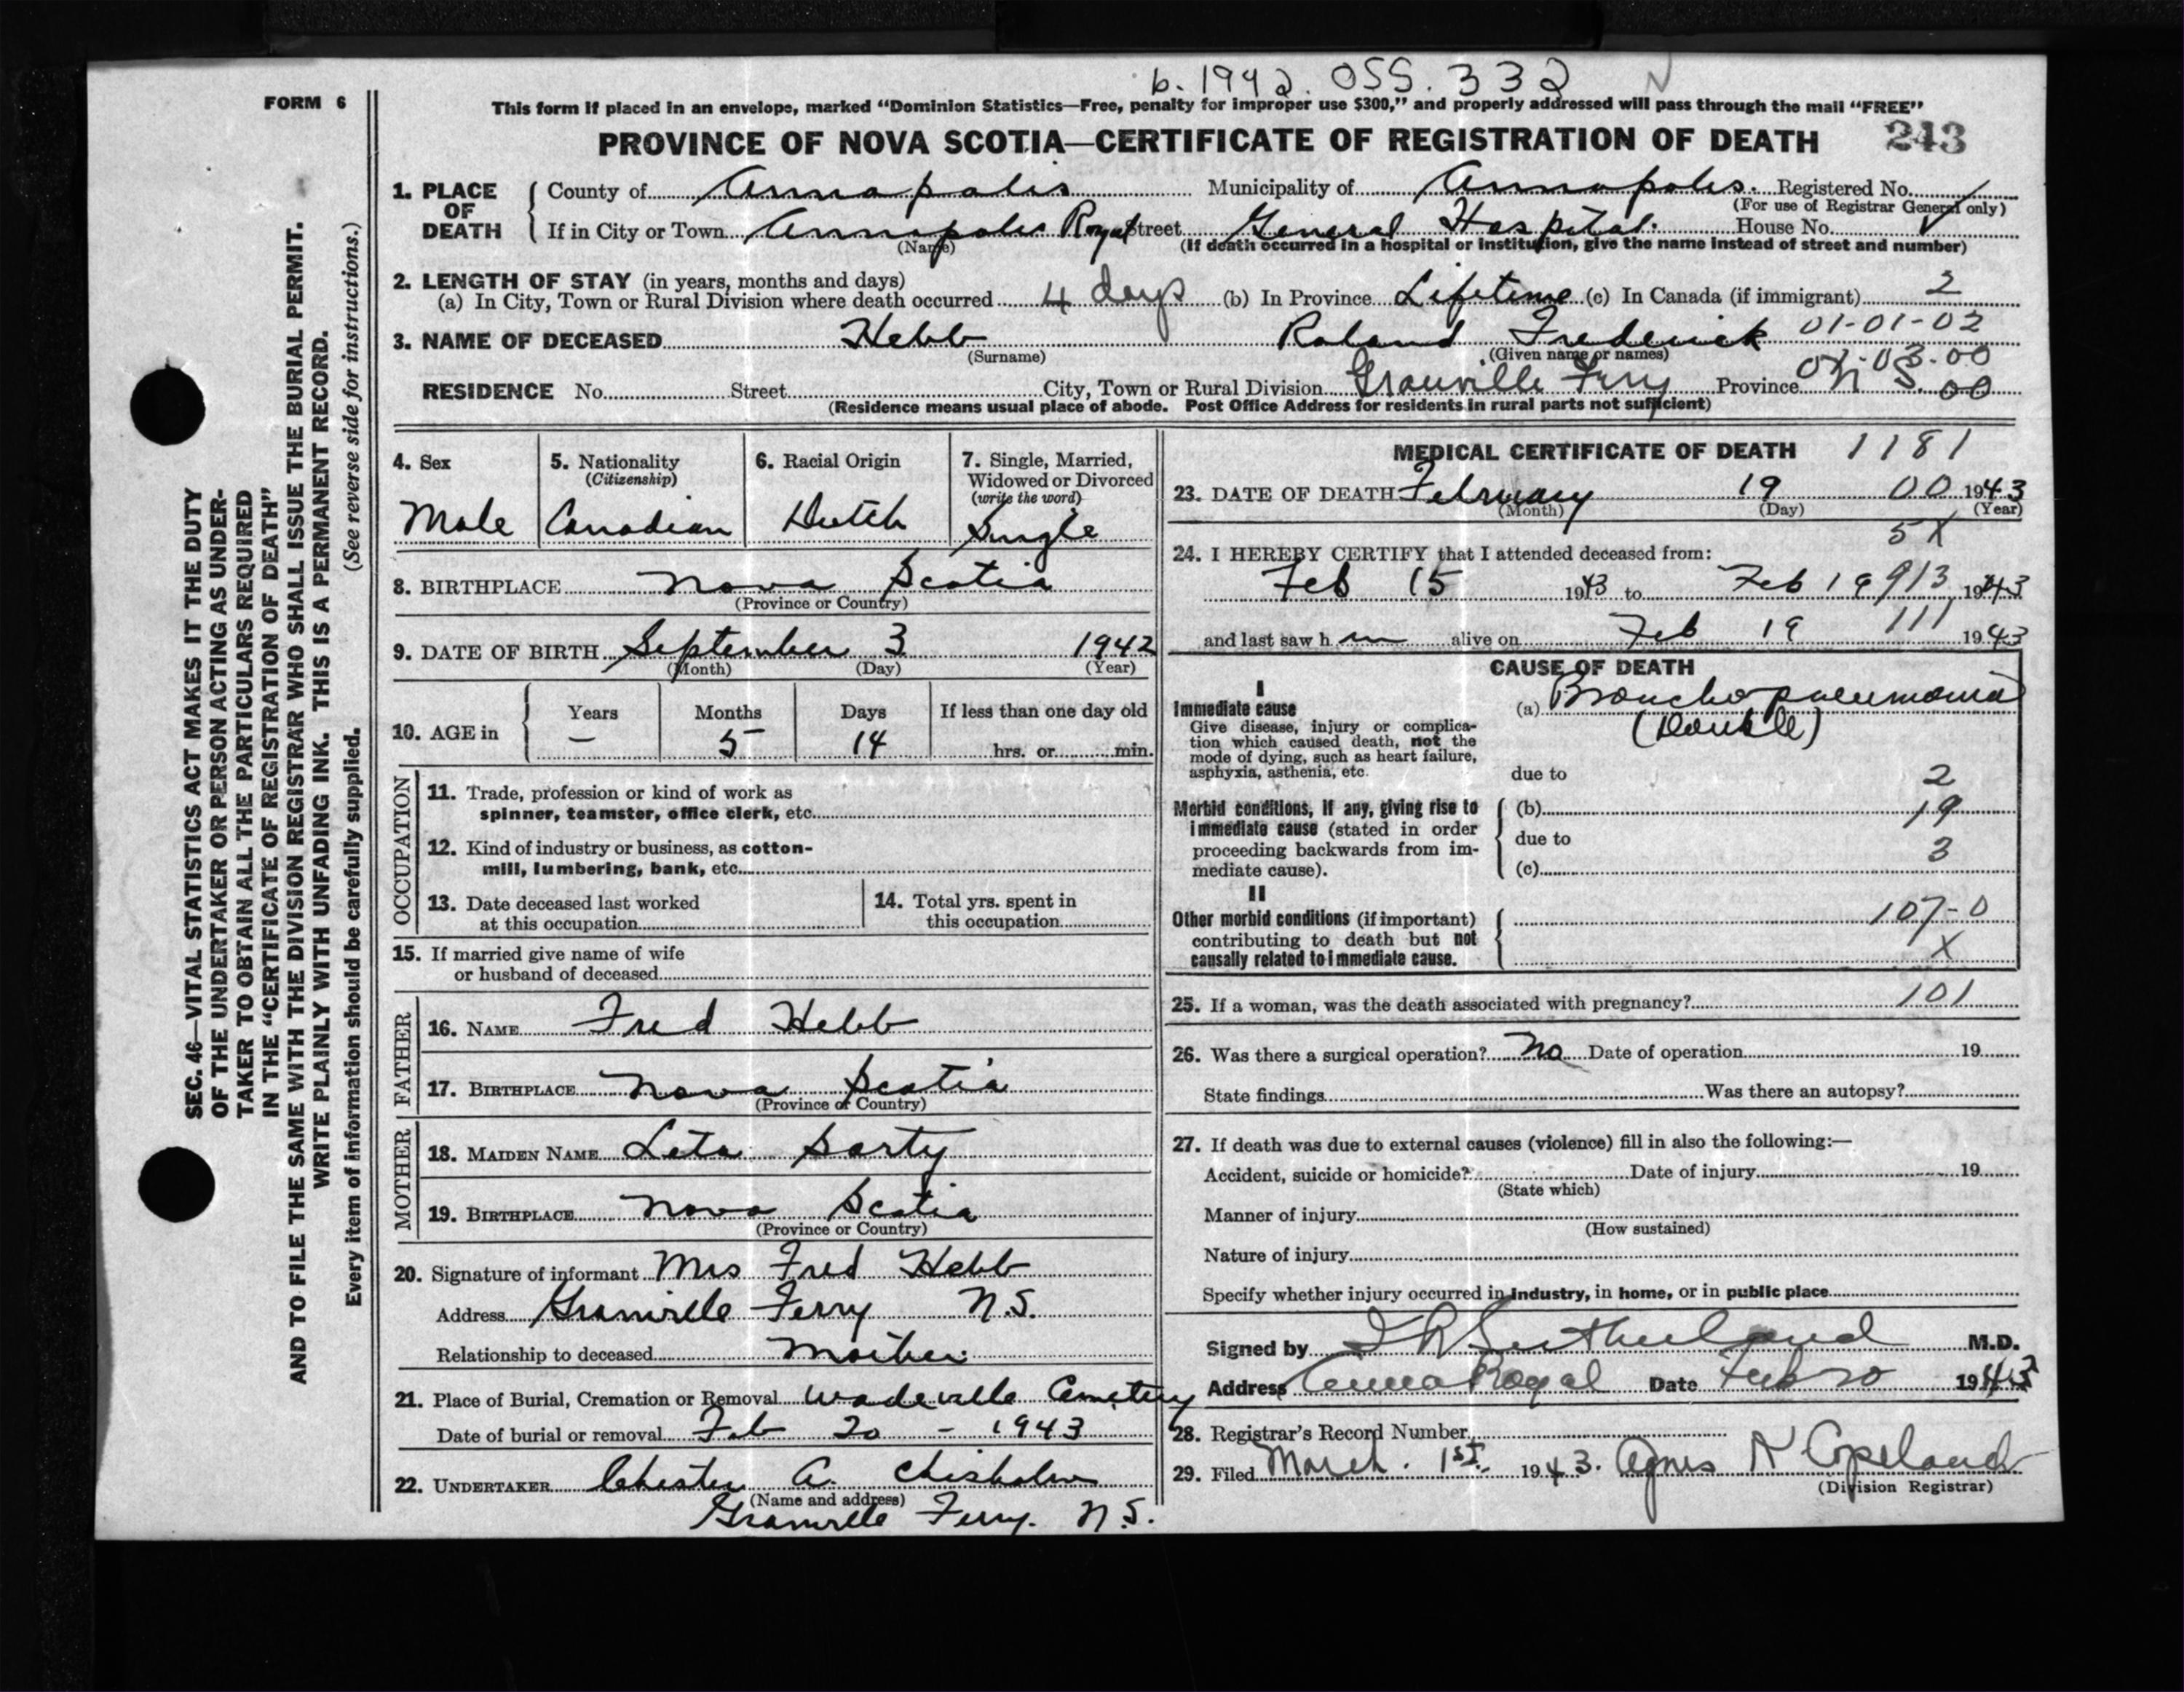 b. 1942. 055. 332
FORM 6
This form if placed in an envelope, marked “Dominion Statistics—Free, penalty for improper use $300,” and properly addressed will pass through the mail “FREE”
PROVINCE OF NOVA SCOTIA—CERTIFICATE OF REGISTRATION OF DEATH 243
SEC. 46—VITAL STATISTICS ACT MAKES IT THE DUTY
OF THE UNDERTAKER OR PERSON ACTING AS UNDER-
TAKER TO OBTAIN ALL THE PARTICULARS REQUIRED
IN THE “CERTIFICATE OF REGISTRATION OF DEATH”
AND TO FILE THE SAME WITH THE DIVISION REGISTRAR WHO SHALL ISSUE THE BURIAL PERMIT.
WRITE PLAINLY WITH UNFADING INK. THIS IS A PERMANENT RECORD.
Every item of information should be carefully supplied. (See reverse side for instructions.)
1. PLACE OF DEATH
County of Annapolis Municipality of Annapolis. Registered No.
(For use of Registrar General only)
If in City or Town Annapolis Royal Street General Hospital. House No.
(Name) (If death occurred in a hospital or institution, give the name instead of street and number)
2. LENGTH OF STAY (in years, months and days)
(a) In City, Town or Rural Division where death occurred 4 days (b) In Province Lifetime (c) In Canada (if immigrant) 2
3. NAME OF DECEASED Hebb Roland Frederick 01-01-02
(Surname) (Given name or names) 02-03-00
RESIDENCE No. Street City, Town or Rural Division Granville Ferry Province N.S. 00
(Residence means usual place of abode. Post Office Address for residents in rural parts not sufficient)
4. Sex Male
5. Nationality (Citizenship) Canadian
6. Racial Origin Dutch
7. Single, Married, Widowed or Divorced (write the word) Single
8. BIRTHPLACE Nova Scotia
(Province or Country)
9. DATE OF BIRTH September 3 1942
(Month) (Day) (Year)
10. AGE in Years Months Days If less than one day old
— 5 14 hrs. or min.
OCCUPATION
11. Trade, profession or kind of work as
spinner, teamster, office clerk, etc.
12. Kind of industry or business, as cotton-
mill, lumbering, bank, etc.
13. Date deceased last worked
at this occupation
14. Total yrs. spent in
this occupation
15. If married give name of wife
or husband of deceased
FATHER
16. NAME Fred Hebb
17. BIRTHPLACE Nova Scotia
(Province or Country)
MOTHER
18. MAIDEN NAME Leta Sarty
19. BIRTHPLACE Nova Scotia
(Province or Country)
20. Signature of informant Mrs Fred Hebb
Address Granville Ferry N.S.
Relationship to deceased Mother
21. Place of Burial, Cremation or Removal Wadeville Cemetery
Date of burial or removal Feb 20 - 1943
22. UNDERTAKER Chester A. Chisholm
(Name and address)
Granville Ferry. N.S.
MEDICAL CERTIFICATE OF DEATH 1181
23. DATE OF DEATH February 19 00 1943
(Month) (Day) (Year)
5X
24. I HEREBY CERTIFY that I attended deceased from:
Feb 15 1943 to Feb 19 913 1943
and last saw h im alive on Feb 19 111 1943
CAUSE OF DEATH
I
Immediate cause
Give disease, injury or complica-
tion which caused death, not the
mode of dying, such as heart failure,
asphyxia, asthenia, etc.
(a) Broncho pneumonia
(Double)
due to 2
Morbid conditions, if any, giving rise to
immediate cause (stated in order
proceeding backwards from im-
mediate cause).
(b) 19
due to 3
(c)
II
Other morbid conditions (if important)
contributing to death but not
causally related to immediate cause.
107-0
X
25. If a woman, was the death associated with pregnancy? 101
26. Was there a surgical operation? No Date of operation 19
State findings Was there an autopsy?
27. If death was due to external causes (violence) fill in also the following:—
Accident, suicide or homicide? Date of injury 19
(State which)
Manner of injury
(How sustained)
Nature of injury
Specify whether injury occurred in industry, in home, or in public place
Signed by Sutherland M.D.
Address Anna Royal Date Feb 20 1943
28. Registrar's Record Number
29. Filed March. 1st. 1943. Agnes N Copeland
(Division Registrar)